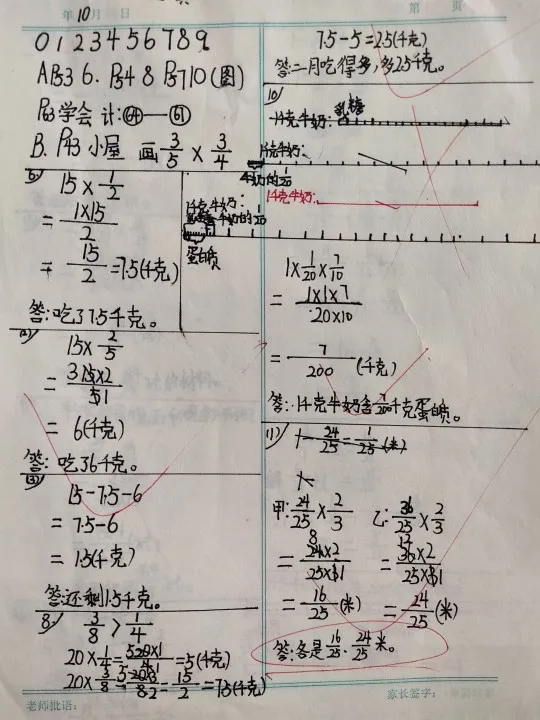 年10月 日
0 1 2 3 4 5 6 7 8 9
A P53 6. P54 8 P57 10(图)
P63 学会 计:64—61
B. P43 小屋 画3/5 × 3/4
15×1/2
=1×15/2
=15/2=7.5(千克)
答:吃了7.5千克。
(2)
15×2/5
=3 15×2/5 1
=6(千克)
答:吃了6千克。
(3)
15-7.5-6
=7.5-6
=1.5(千克)
答:还剩1.5千克。
8.
3/8>1/4
20×1/4=5 20×1/4 1=5(千克)
20×3/8=5 20×3/8 2=15/2=7.5(千克)
老师批语:
第 页
7.5-5=2.5(千克)
答:二月吃得多,多2.5千克。
10)
乳糖
1千克牛奶:
1千克牛奶:
牛奶的1/20
1千克牛奶:
1千克牛奶:
牛奶的1/20
蛋白质
1×1/20×7/10
=1×1×7/20×10
=7/200(千克)
答:1千克牛奶含7/200千克蛋白质。
11)
1-24/25=1/25(米)
甲:24/25×2/3 乙:36/25×2/3
=8 24×2/25×3 1 =12 36×2/25×3 1
=16/25(米) =24/25(米)
答:各是16/25、24/25米。
家长签字: